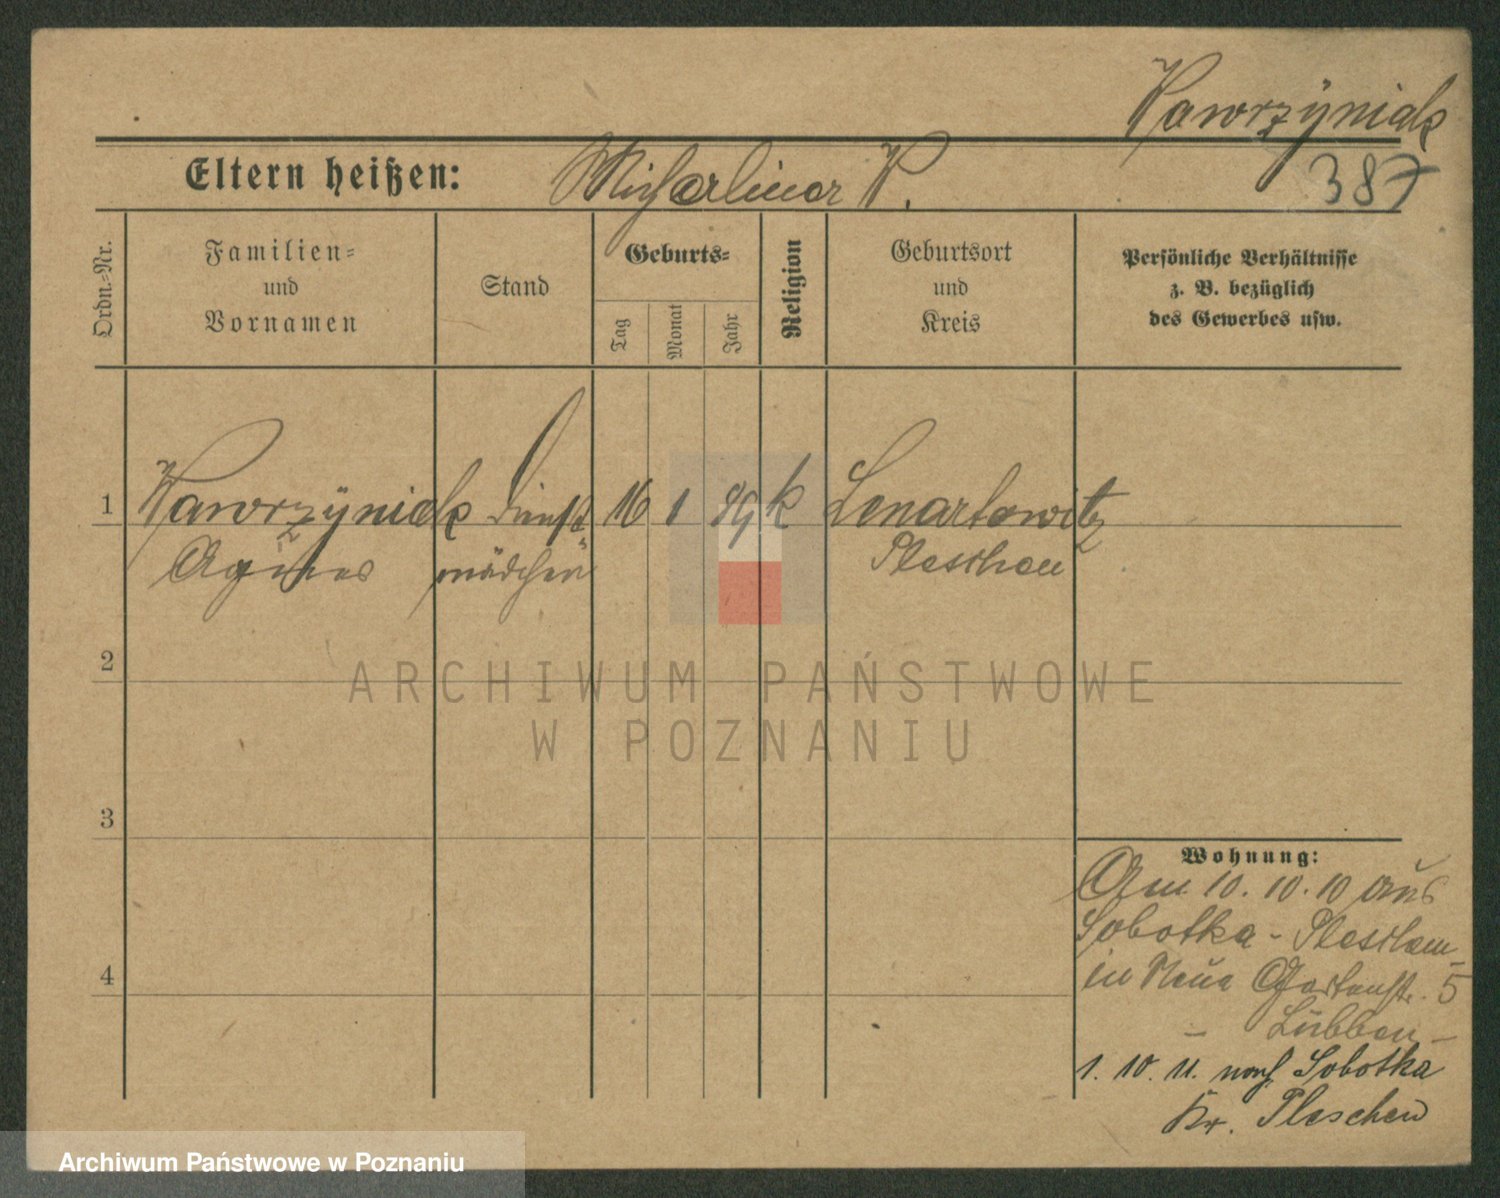 Wawrzÿniak
387
Eltern heißen: W.
Ordn.-Nr.
Familien- und Vornamen
Stand
Geburts-
Tag
Monat
Jahr
Religion
Geburtsort und Kreis
Persönliche Verhältnisse
z. B. bezüglich
des Gewerbes usw.
1 Wawrzÿniak Dienst- 16 1 89 k Lenartowitz
Agnes mädchen Pleschen
2
3
4
Wohnung:
Am 10. 10. 10 aus
Sobotka - Pleschen
in Neue Gartenstr. 5
- Lübben -
1. 10. 11. nach Sobotka
Kr. Pleschen
ARCHIWUM PAŃSTWOWE
W POZNANIU
Archiwum Państwowe w Poznaniu